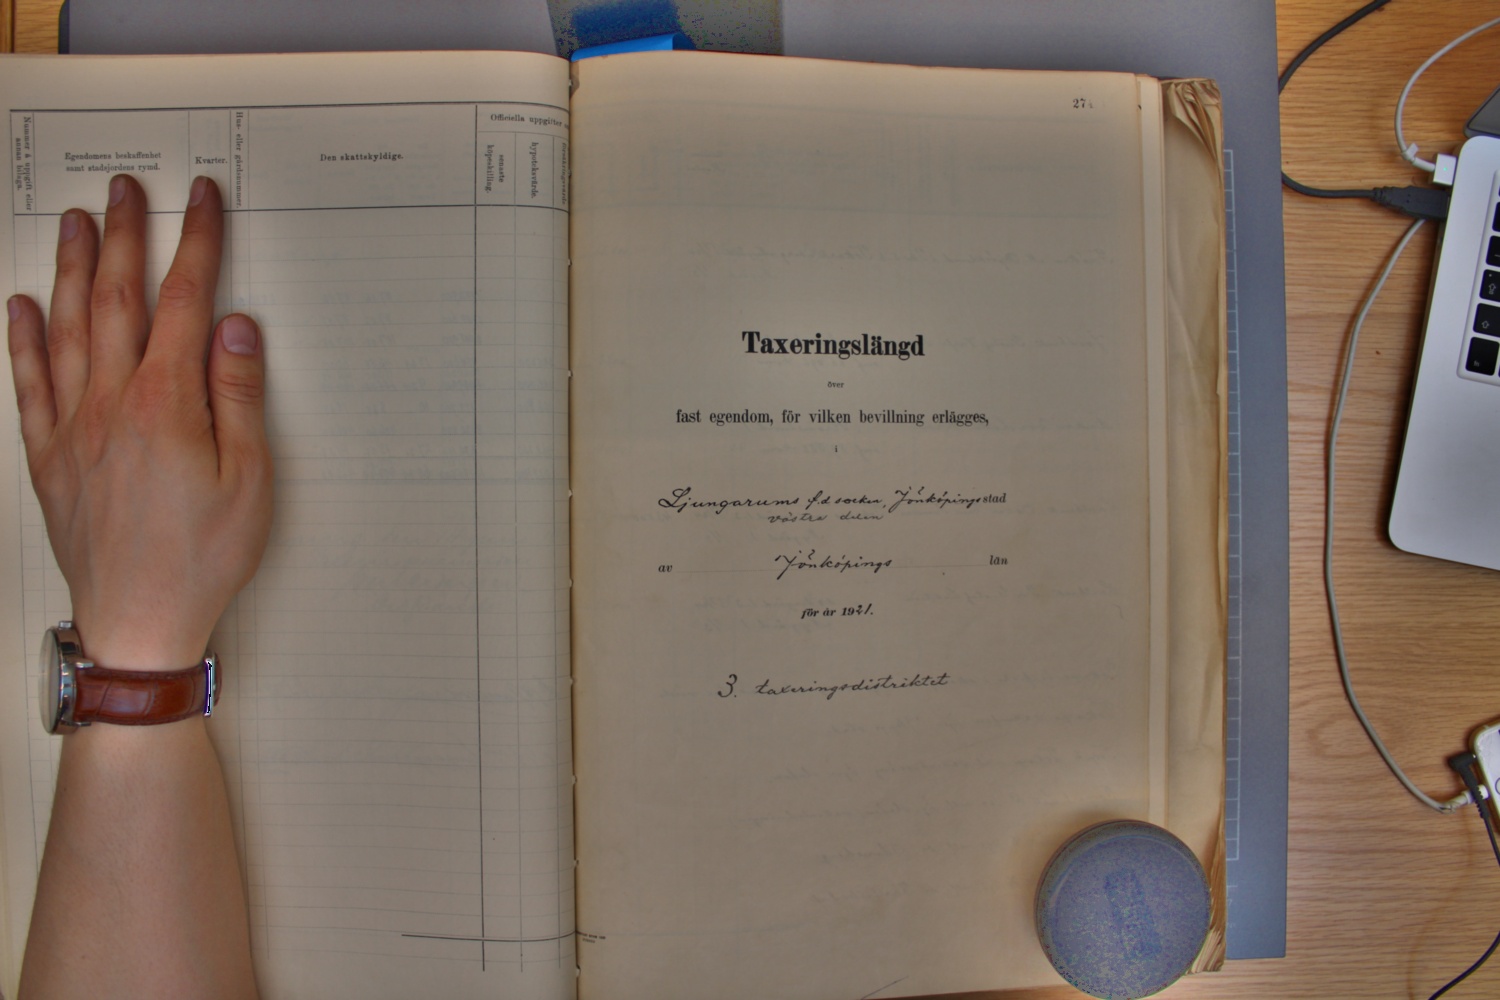 Nummer å uppgift eller
annan bilaga.
Egendomens beskaffenhet
samt stadsjordens rymd.
Kvarter.
Hus- eller gårdsnummer.
Den skattskyldige.
Officiella uppgifter
senaste
köpeskilling.
hypoteksvärde.
27
Taxeringslängd
över
fast egendom, för vilken bevillning erlägges,
i
Ljungarums f.d socken, Jönköpings stad
västra delen
av Jönköpings län
för år 1921.
3. taxeringsdistriktet